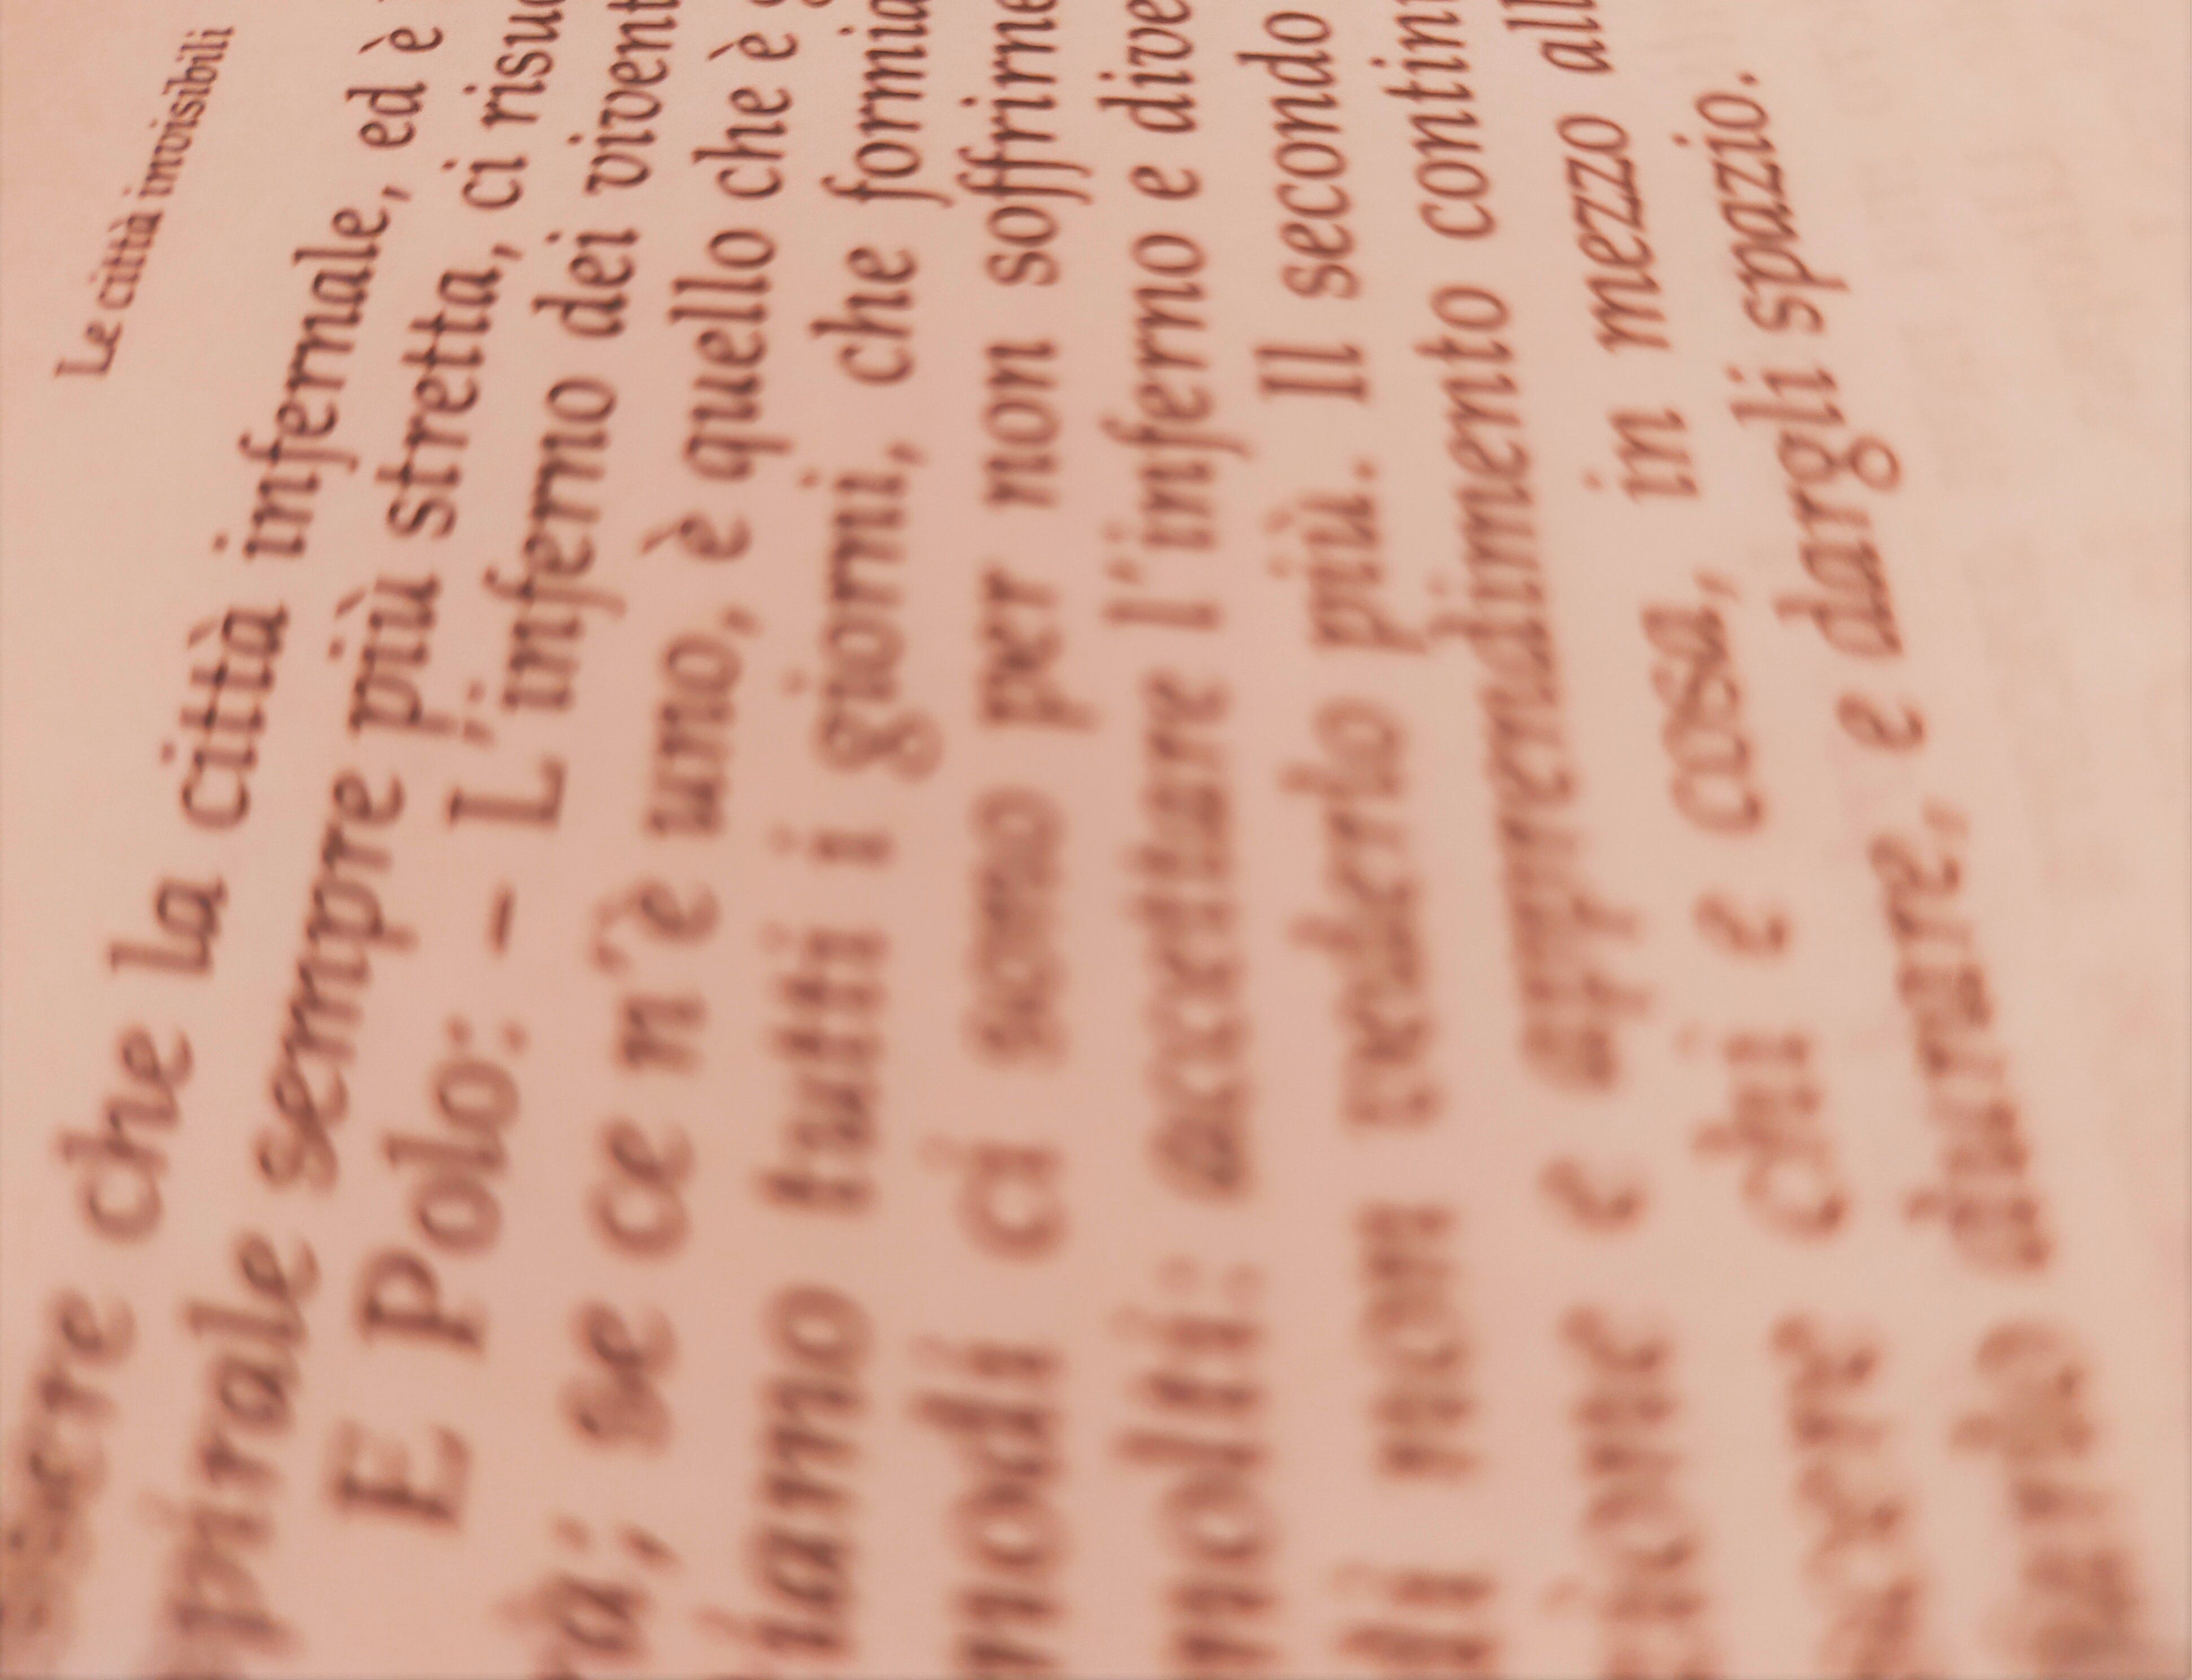 Le città invisibili
che la città infernale, ed è
pirale sempre più stretta, ci risu
E Polo: – L'inferno dei vivent
rà; se ce n'è uno, è quello che è g
iamo tutti i giorni, che formia
modi ci sono per non soffrirne
molti: accettare l'inferno e dive
di non vederlo più. Il secondo
e apprendimento contin
chi e cosa, in mezzo all
durare, e dargli spazio.